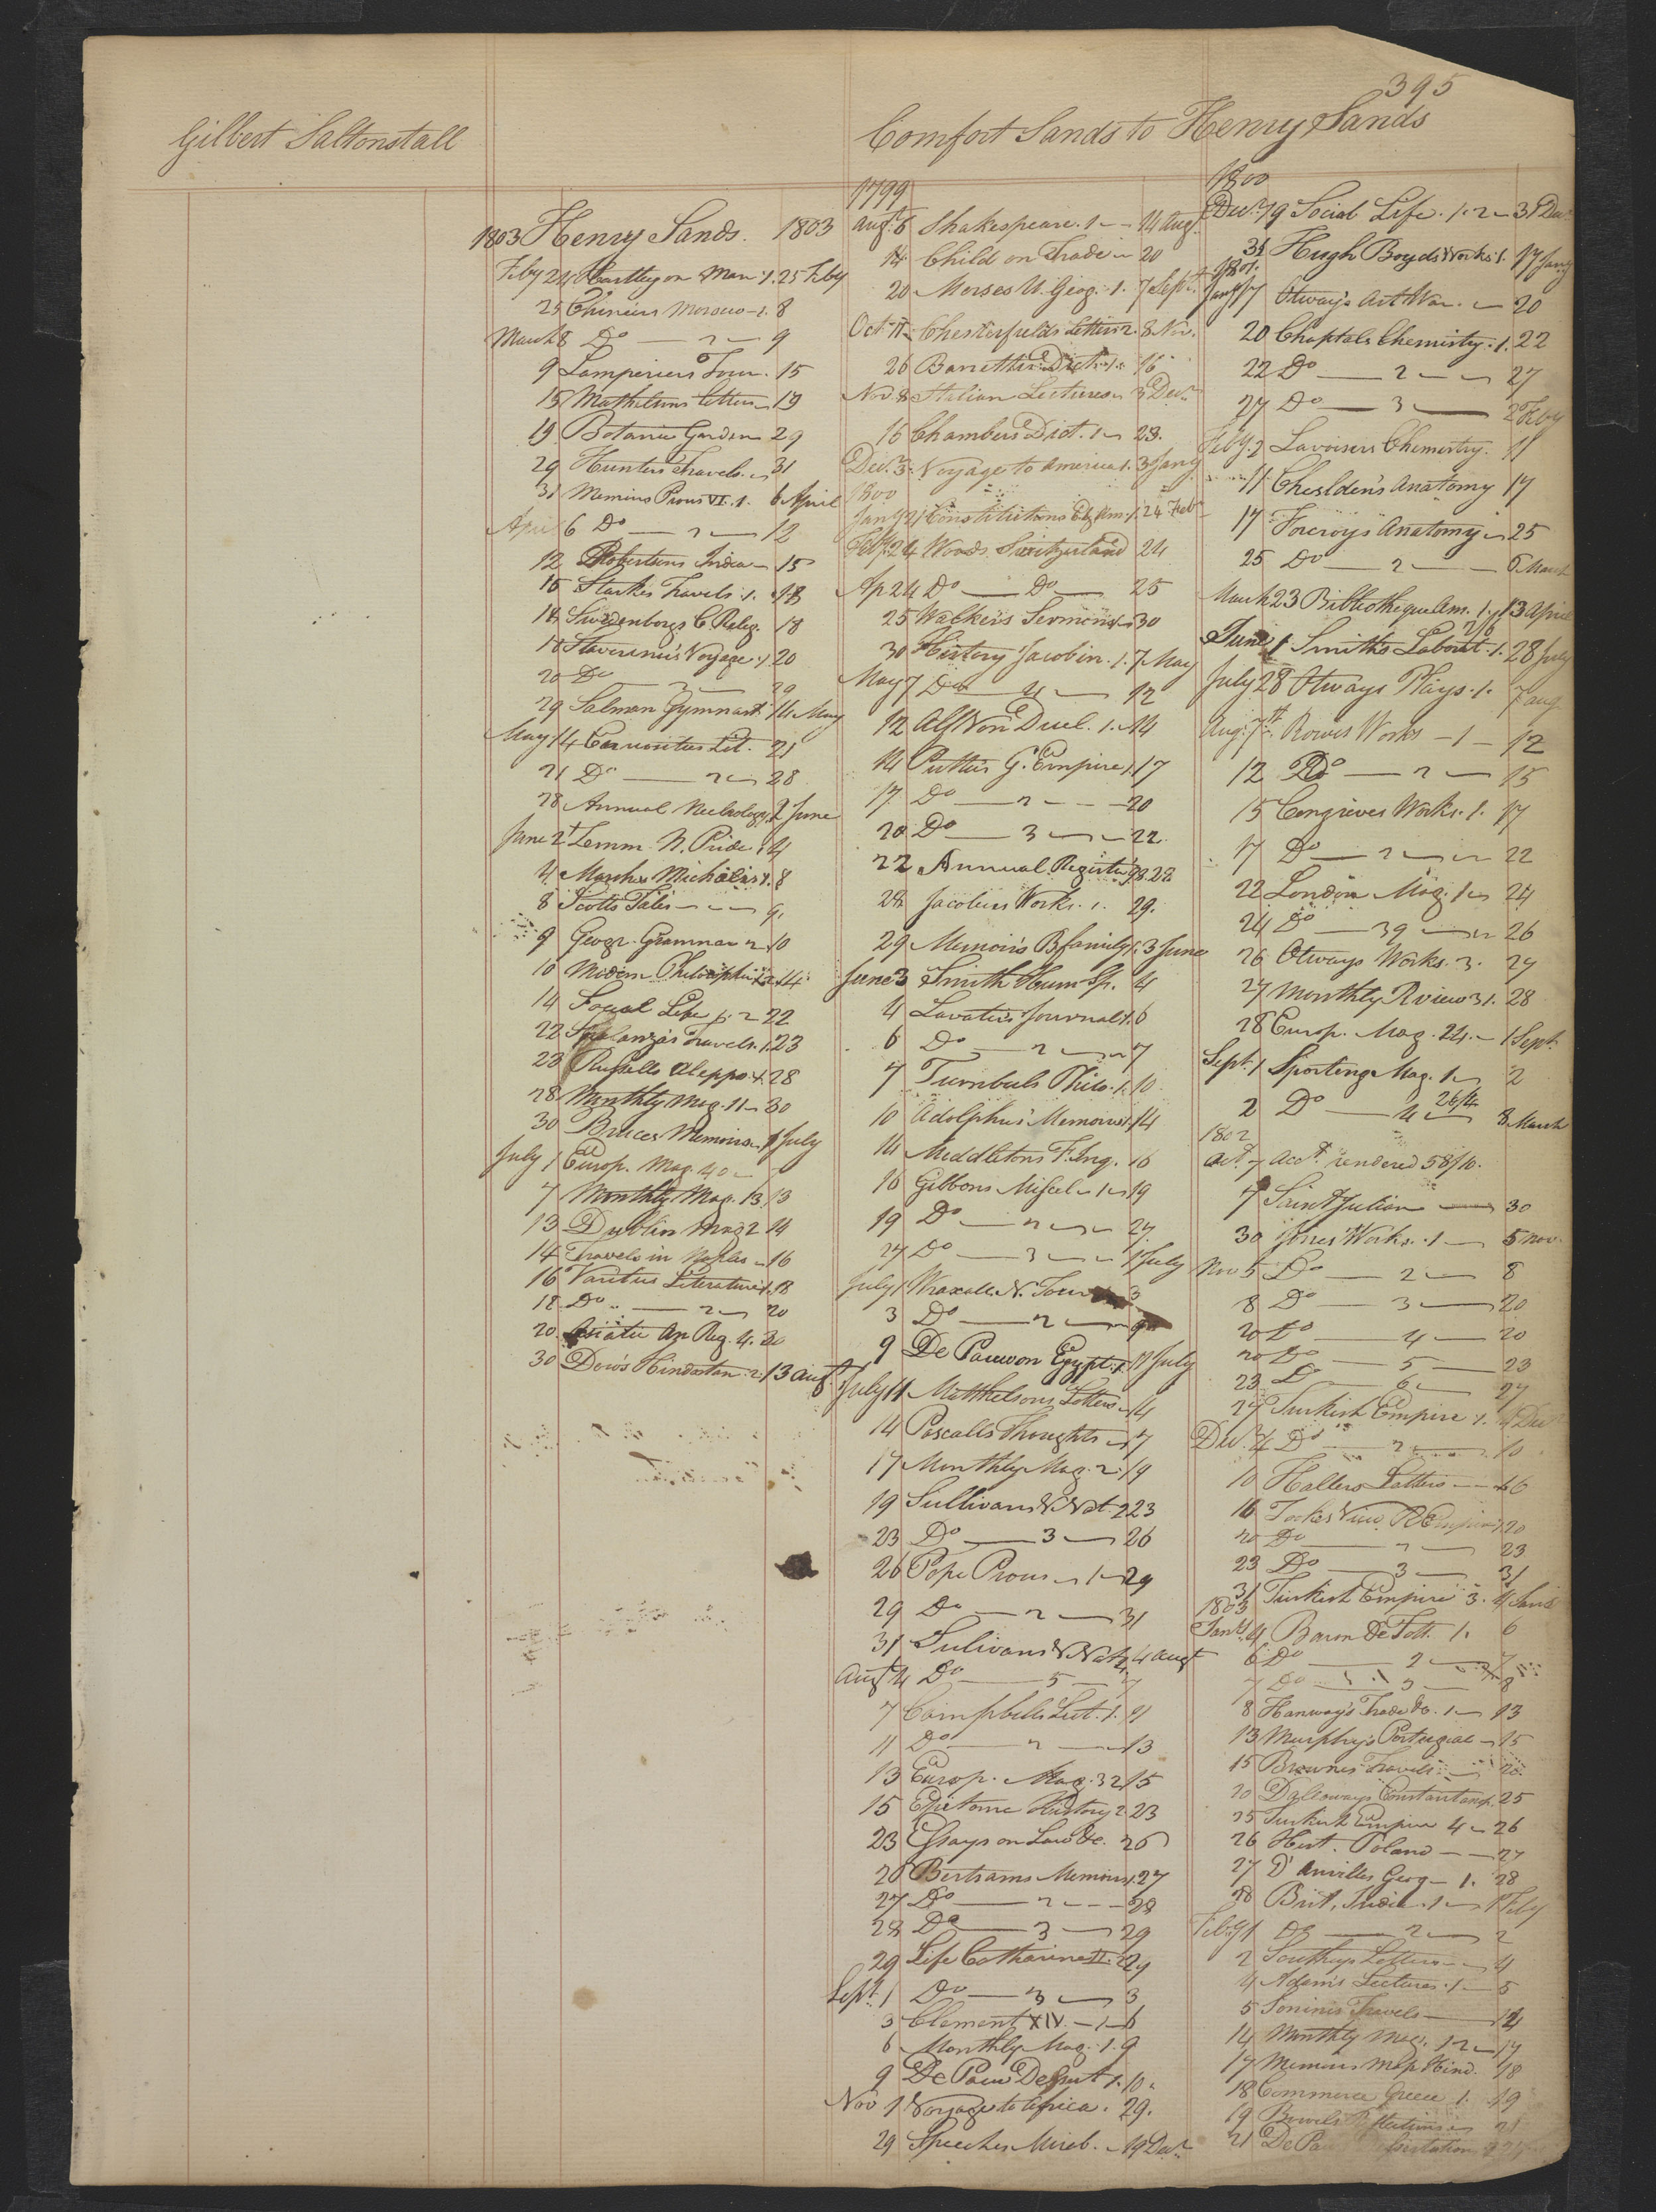 395
Gilbert Saltonstall
Comfort Sands to Henry Sands
1803 Henry Sands. 1803
Feby 24 Hartley on Man .1. 25 Feby
25 Cheniers Morocco - 1. 8
March 8 Do — 2 — 9
9 Lamperiers Tour. 15
15 Mathelsons letters 19
19 Botanic Garden 29
29 Hunters Travels. 31
31 Memins Pious VI. 1. 6 April
April 6 Do — 2 — 12
12 Robertsons India 15
15 Starkes Travels .1. 18
18 Swedenborgs C. Relig. 18
18 Stavorinus's Voyage .1. 20
20 Do — 2 — 29
29 Salman Gymnast. 14 May
May 14 Curiosities Lit. 21
21 Do — 2 — 28
28 Annual Necrology. 2 June
June 2 Lemm. N. Pride . 4
4 Marshes Michaelis 1. 8
8 Scotts Tales — 9.
9 Geogr. Grammar 10
10 Modern Philosophers 2. 14.
14 Social Life 1. 2 22
22 Spalanzas Travels. 1. 23
23 Russells Aleppo 1. 28
28 Monthly Mag. 11 30
30 Bruces Memoirs 1 July
July 1 Europ. Mag. 40
7 Monthly Mag. 13. 13
13 Dublin Mag 2 14
14 Travels in Naples 16
16 Varitus Literature 1. 18
18 Do — 2 — 20
20 Asiatic An Reg. 4. 30
30 Dow's Hindostan. 2. 13 Aug.
1799
Augt. 6 Shakespeare. 1 — 14 Aug.
14 Child on Trade 20
20 Morses U. Geog. 1. 7 Sept.
Oct. 11 Chesterfields Letters 2. 8 Nov.
26 Barretties Dict. 1. 16
Nov. 8 Italian Lectures 3 Decr
15 Chambers Dict. 1 23.
Dec. 3 Voyage to America 1. 3 Jany
1800
Jany 21 Constitutions Am. 1. 24 Feb
Feby. 24 Woods Switzerland 24
Ap 24 Do — Do — 25
25 Walkers Sermons 30
30 History Jacobin. 1. 7 May
May 7 Do — 4 — 12
12 Alf Von Duel. 1. 14
14 Putties G. Empire 1. 17
17 Do — 2 — 20
20 Do — 3 — 22
22 Annual Register 98. 28
28 Jacobins Works. 1. 29.
29 Memoirs B family 1. 3 June
June 3 Smith Hum Sp. 4
4 Lavaters Journal 1. 6
6 Do — 2 — 7
7 Turnbuls Philo. 1. 10
10 Adolphus' Memoirs 1. 14
14 Middletons F. Inq. 16
16 Gibbons Miscel 1 19
19 Do — 2 — 27
27 Do — 3 — 1 July
July 1 Wraxalls N. Tour 3
3 Do — 2 — 9
9 De Pauw on Egypt. 1. 11 July
July 11 Matthelsons Letters 14
14 Pascalls Thoughts 17
17 Monthly Mag. 2. 19
19 Sullivans V. Nat 2 23
23 Do — 3 — 26
26 Pope Prous 1 29
29 Do — 2 — 31
31 Sulivans V. Nat 4. 4 Augt
Augt 4 Do — 5 — 7
7 Campbells Lect. 1. 11
11 Do — 2 — 13
13 Europ. Mag. 32 15
15 Epitome History 2. 23
23 Essays on Law &c. 26
26 Bertrams Memoirs 1. 27
27 Do — 2 — 28
28 Do — 3 — 29
29 Life Catharine II. 29
Sept. 1 Do — 3 — 3
3 Clement XIV. — 1 6
6 Monthly Mag. 1. 9
9 De Pauw Dessert 1. 10.
Nov 1 Voyage to Africa. 29.
29 Speeches Mirab. 19 Decr
1800
Decr 19 Social Life. 1. 2 31 Decr
31 Hugh Boyds Works 1. 17 Jany
1801.
Jany 17 Otway's Art War. 20
20 Chaptals Chemistry. 1. 22
22 Do — 2 — 27
27 Do — 3 — 2 Feby
Feby. 2 Lavoisiers Chemistry. 11
11 Cheslden's Anatomy 17
17 Forcroys Anatomy 25
25 Do — 2 — 6 March
March 23 Bibliotheque Am. 1. 13 April
2/6
June 1 Smiths Laborat. 1. 28 July
July 28 Otways Plays. 1. 7 Aug
Aug. 7 Rowes Works — 1 — 12
12 Do — 2 — 15
15 Congreves Works. 1. 17
17 Do — 2 — 22
22 London Mag. 1 24
24 Do — 39 — 26
26 Otways Works. 3. 27
27 Monthly Rview 31. 28
28 Europ. Mag. 24. 1 Sept.
Sept. 1 Sporting Mag. 1 2
2 Do — 4 26/4 8 March
1802
Oct. 7 Acct. rendered 58/10.
7 Saint Julian — 30
30 Jones Works. 1 — 5 Nov.
Nov 5 Do — 2 — 8
8 Do — 3 — 20
20 Do — 4 — 20
20 Do — 5 — 23
23 Do — 6 — 27
27 Turkish Empire 1. 4 Decr
Decr. 4 Do — 2 — 10
10 Hallers Letters — 16
16 Tookes View R Empire 1. 20
20 Do — 2 — 23
23 Do — 3 — 31
31 Turkish Empire 3. 4 Jany
1803
Jany. 4 Baron De Tott. 1. 6
6 Do — 2 — 7
7 Do — 3 — 8
8 Hanway's Trade &c. 1 — 13
13 Murphy's Portugal 15
15 Brownes Travels — 20.
20 Dalloways Constantinop. 25
25 Turkish Empire 4 26
26 Hist. Poland — 27
27 D'Anvilles Geog 1. 28
28 Brit. India. 1 — 1 Feby
Feby 1 Do — 2 — 2
2 Southeys Letters 4
4 Adams Lectures. 1 — 5
5 Soninis Travels — 14
14 Monthly Mag. 12 17
17 Memoirs Map Hind. 18
18 Commerce Greece 1. 19
19 21
21 De Pau